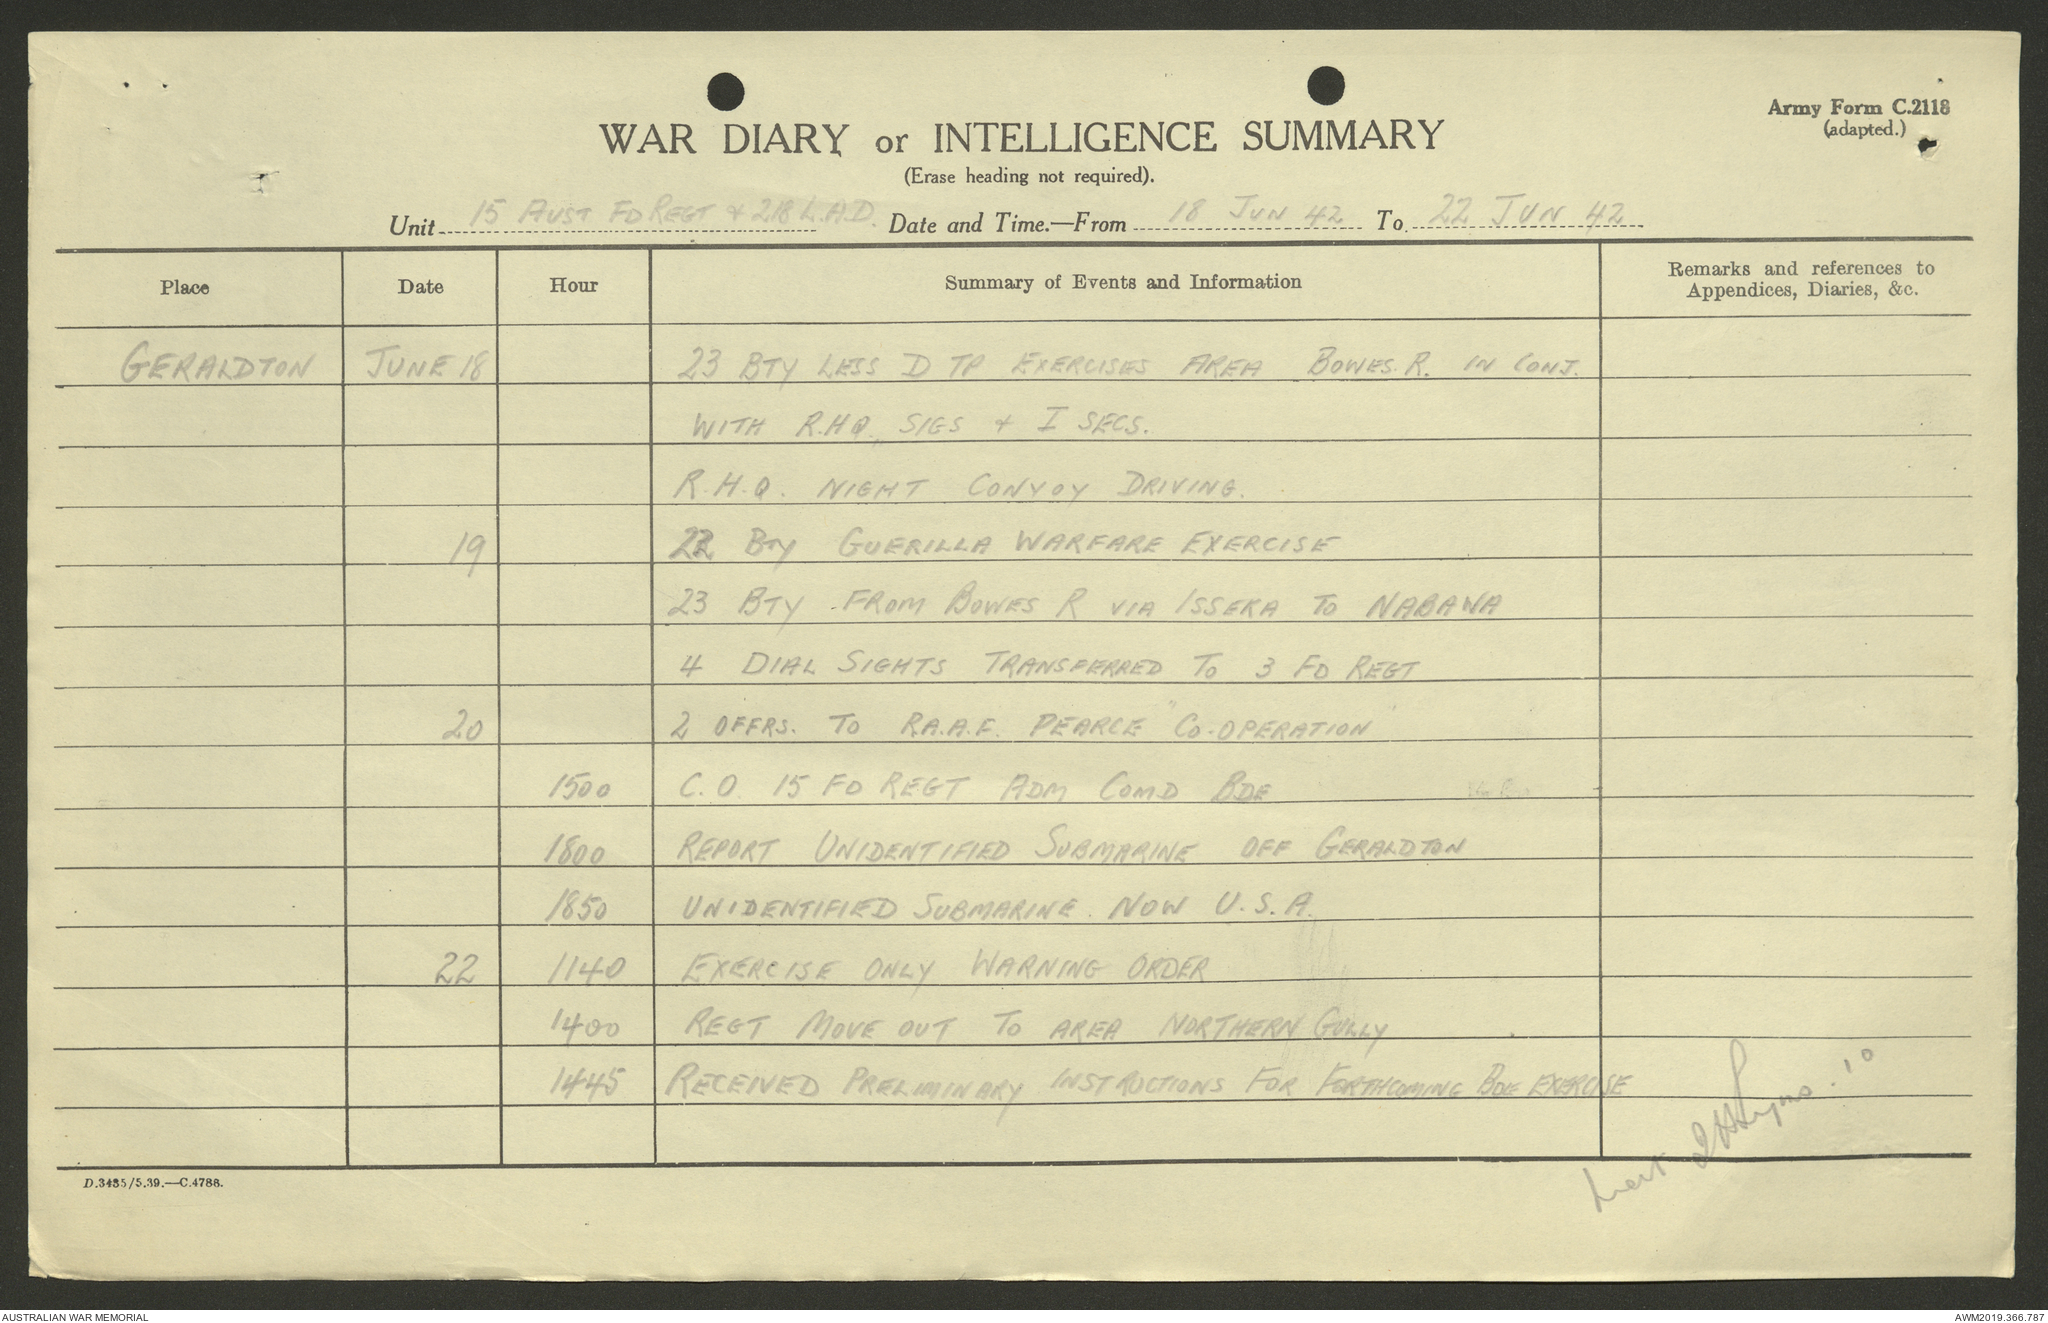 Army Form C.2118
(adapted.)
WAR DIARY or INTELLIGENCE SUMMARY
(Erase heading not required).
Unit 15 AUST FD REGT & 218 L.A.D. Date and Time.—From 18 JUN 42 To 22 JUN 42
Place Date Hour Summary of Events and Information Remarks and references to
Appendices, Diaries, &c.
GERALDTON JUNE 18 23 BTY LESS D TP EXERCISES AREA BOWES. R. IN CONJ.
WITH R.HQ., SIGS & I SECS.
R.H.Q. NIGHT CONVOY DRIVING.
19 22 BTY GUERILLA WARFARE EXERCISE
23 BTY FROM BOWES R VIA ISSEKA TO NABAWA
4 DIAL SIGHTS TRANSFERRED TO 3 FD REGT
20 2 OFFRS. TO R.A.A.F. PEARCE "CO-OPERATION"
1500 C.O. 15 FD REGT ADM COMD BDE
1800 REPORT UNIDENTIFIED SUBMARINE OFF GERALDTON
1850 UNIDENTIFIED SUBMARINE NOW U.S.A.
22 1140 EXERCISE ONLY WARNING ORDER
1400 REGT MOVE OUT TO AREA NORTHERN GULLY
1445 RECEIVED PRELIMINARY INSTRUCTIONS FOR FORTHCOMING BDE EXERCISE
D.3485/5.39.—C.4786.
AUSTRALIAN WAR MEMORIAL
AWM2019.366.787